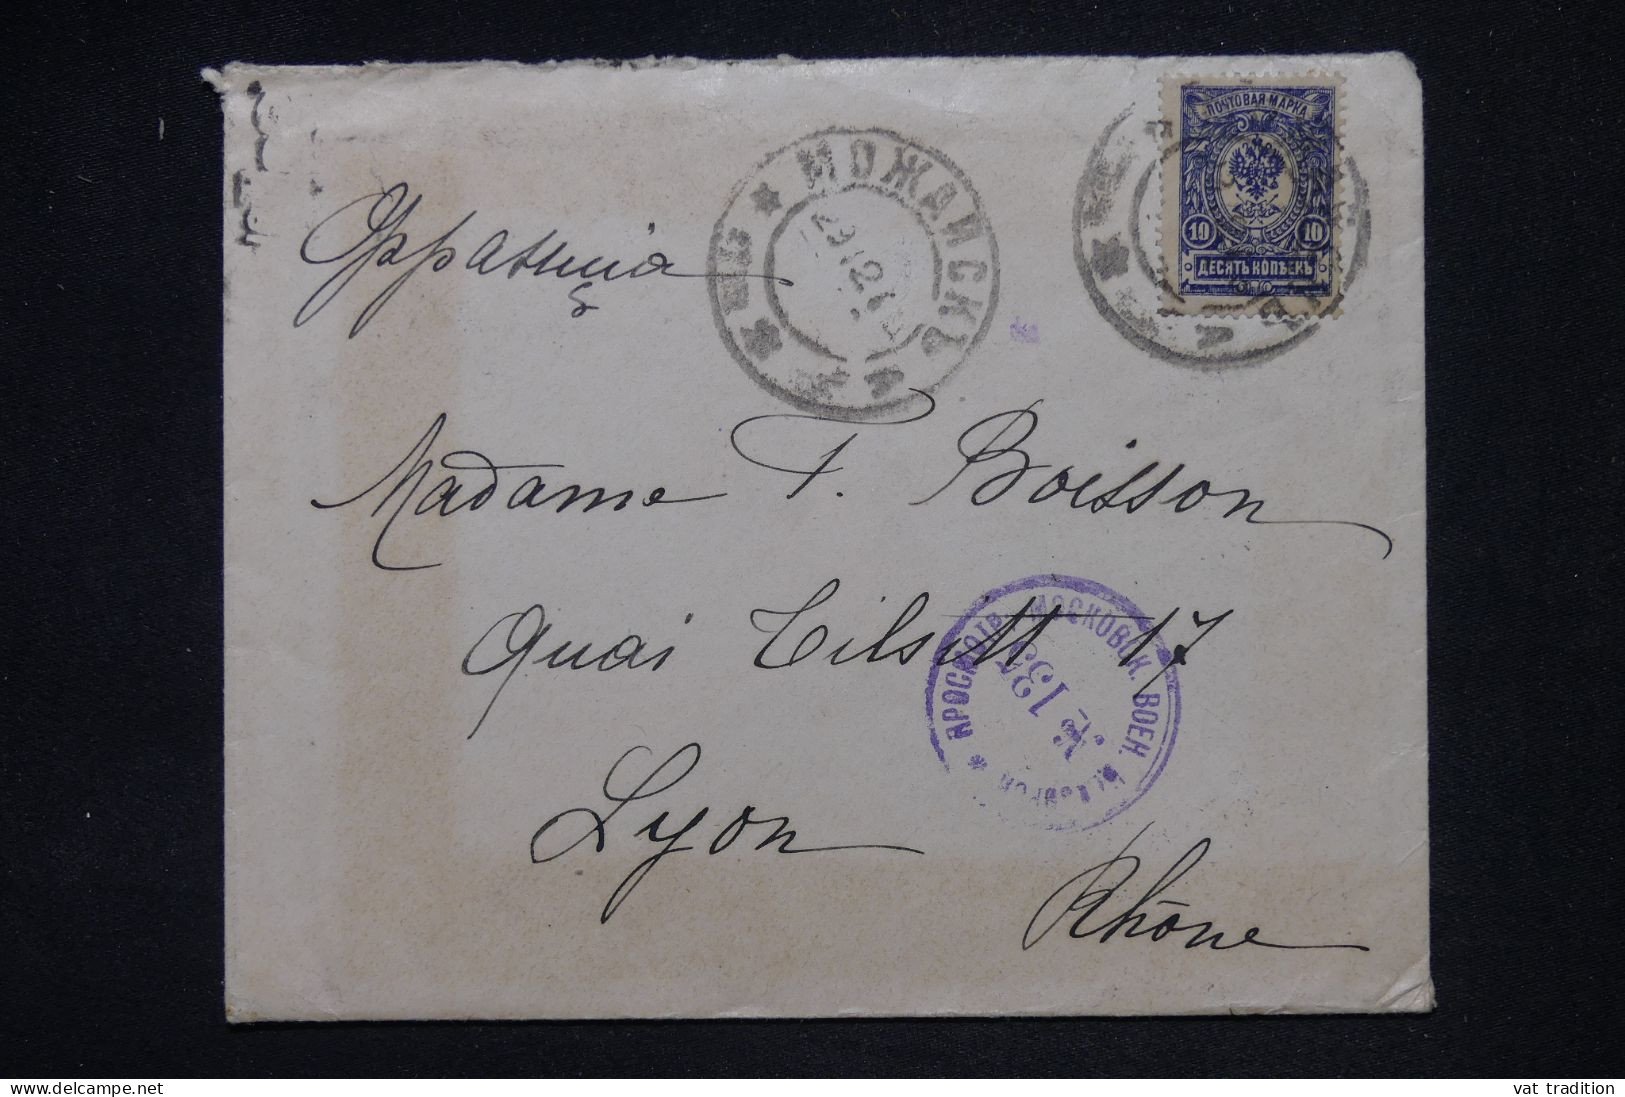 ПОЧТОВАЯ МАРКА
10 10
ДЕСЯТЬ КОПѢЕКЪ
МОЖАЙСКЪ
Франція
Madame F. Boisson
Quai Tilsitt 17
Lyon
Rhône
ПРОСМОТР. МОСКОВСК. ВОЕН.
delcampe.net
vat tradition